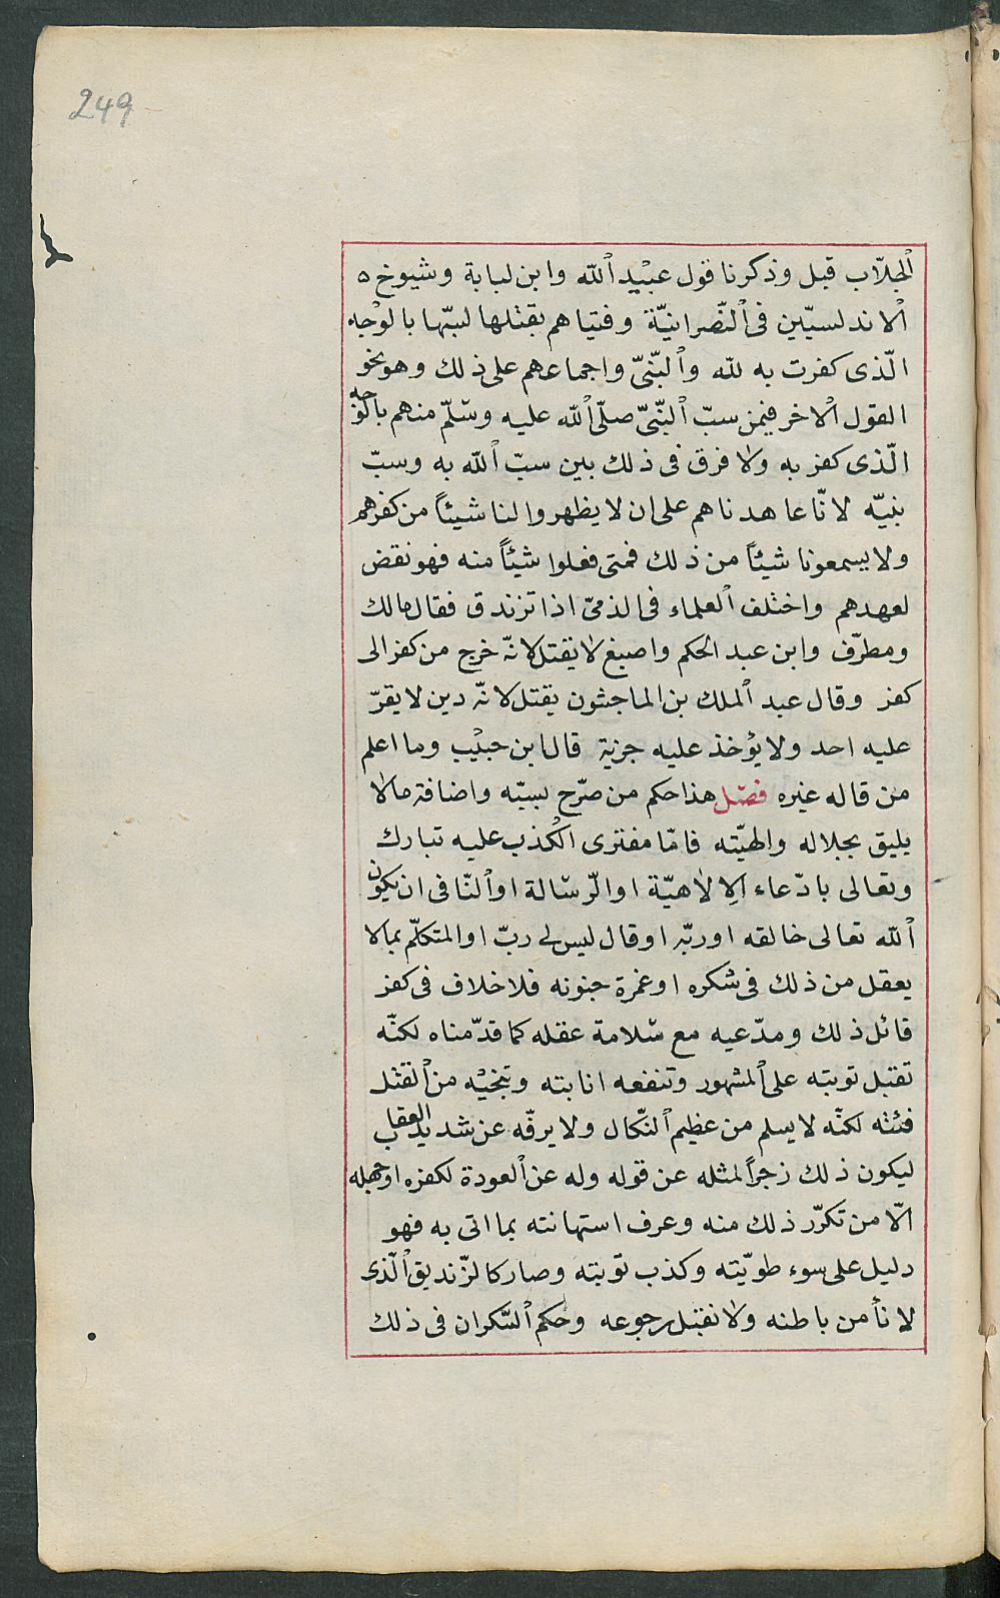 249
الجلّاب قبل وذكرنا قول عبيد الله وابن لبابة وشيوخ ه
الاندلسيّين فى النّصرانيّة وفتياهم بقتلها لسبّها بالوجه
الّذى كفرت به لله والنّبىّ واجماعهم على ذلك وهو نحو
القول الاخر فيمن سبّ النّبىّ صلّى الله عليه وسلّم منهم بالوجه
الّذى كفر به ولا فرق فى ذلك بين سبّ الله به وسبّ
نبيّه لانّا عاهدناهم على ان لا يظهروا لنا شيئاً من كفرهم
ولا يسمعونا شيئاً من ذلك فمتى فعلوا شيئاً منه فهو نقض
لعهدهم واختلف العلماء فى الذمىّ اذا تزندق فقال مالك
ومطرّف وابن عبد الحكم واصبغ لا يقتل لانّه خرج من كفر الى
كفر وقال عبد الملك بن الماجشون يقتل لانّه دين لا يقرّ
عليه احد ولا يؤخذ عليه جزية قال ابن حبيب وما اعلم
من قاله غيره فصل هذا حكم من صرّح بسبّه واضافة مالا
يليق بجلاله والهيّته فامّا مفترى الكذب عليه تبارك
وتعالى بادّعاء الالاهيّة او الرّسالة او النّافى ان يكون
الله تعالى خالقه او ربّه او قال ليس لى ربّ او المتكلّم بمالا
يعقل من ذلك فى سكره او غمرة جنونه فلا خلاف فى كفر
قائل ذلك ومدّعيه مع سلامة عقله كما قدّمناه لكنّه
تقبل توبته على المشهور وتنفعه انابته وتنجيه من القتل
فئته لكنّه لا يسلم من عظيم النّكال ولا يرفّه عن شديد العقاب
ليكون ذلك زجراً لمثله عن قوله وله عن العودة لكفره او جهله
الّا من تكرّر ذلك منه وعرف استهانته بما اتى به فهو
دليل على سوء طويّته وكذب توبته وصار كالزّنديق الّذى
لا نأمن باطنه ولا نقبل رجوعه وحكم السّكران فى ذلك